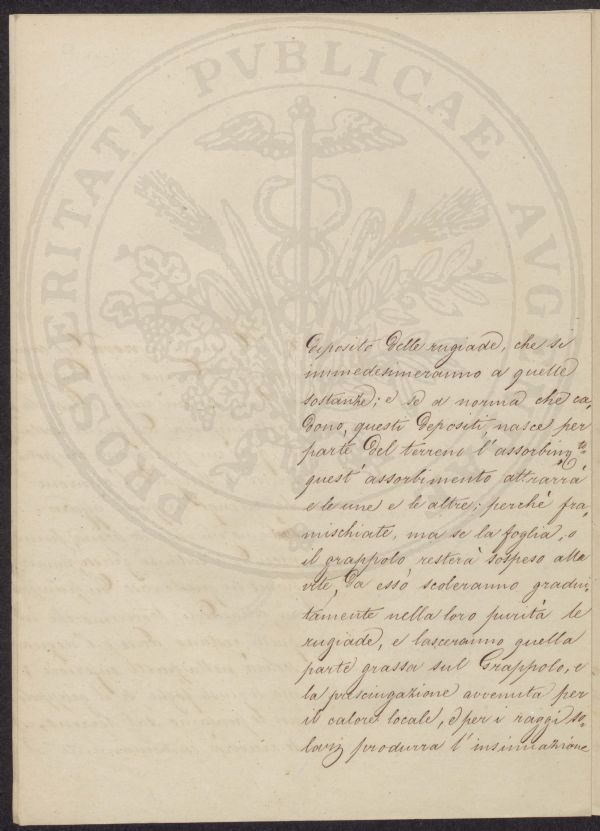 PROSPERITATI PVBLICAE AVG
deposito delle rugiade, che si
immedesimeranno a quelle
sostanze; e se a norma che ca„
dono, questi depositi, nasce per
parte del terreni l'assorbim.to
quest' assorbimento attrarrà
e le une e le altre; perchè fra„
mischiate, ma se la foglia, o
il grappolo resterà sospeso alla
vite, da esso scoleranno gradui„
tamente nella loro purità le
rugiade, e lasceranno quella
parte grassa sul Grappolo, e
la prosciugazione avvenuta per
il calore locale, o per i raggi so„
lari produrra l'insinuazione